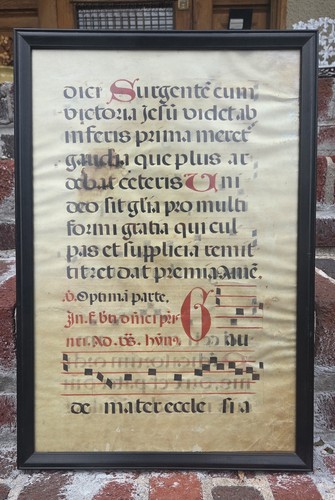 dier Surgentē cum
victoria Jesū videt ab
inferis prima meret
gaudia que plus ar
debat cēteris Uni
deo sit glīa pro multi
formi gratia qui cul
pas et supplicia remit
tit et dat premia amē.
℣. Optimā partē.
In.f. btī dn̄ici
Ad. hym̄.
G
au
de mater eccle sia